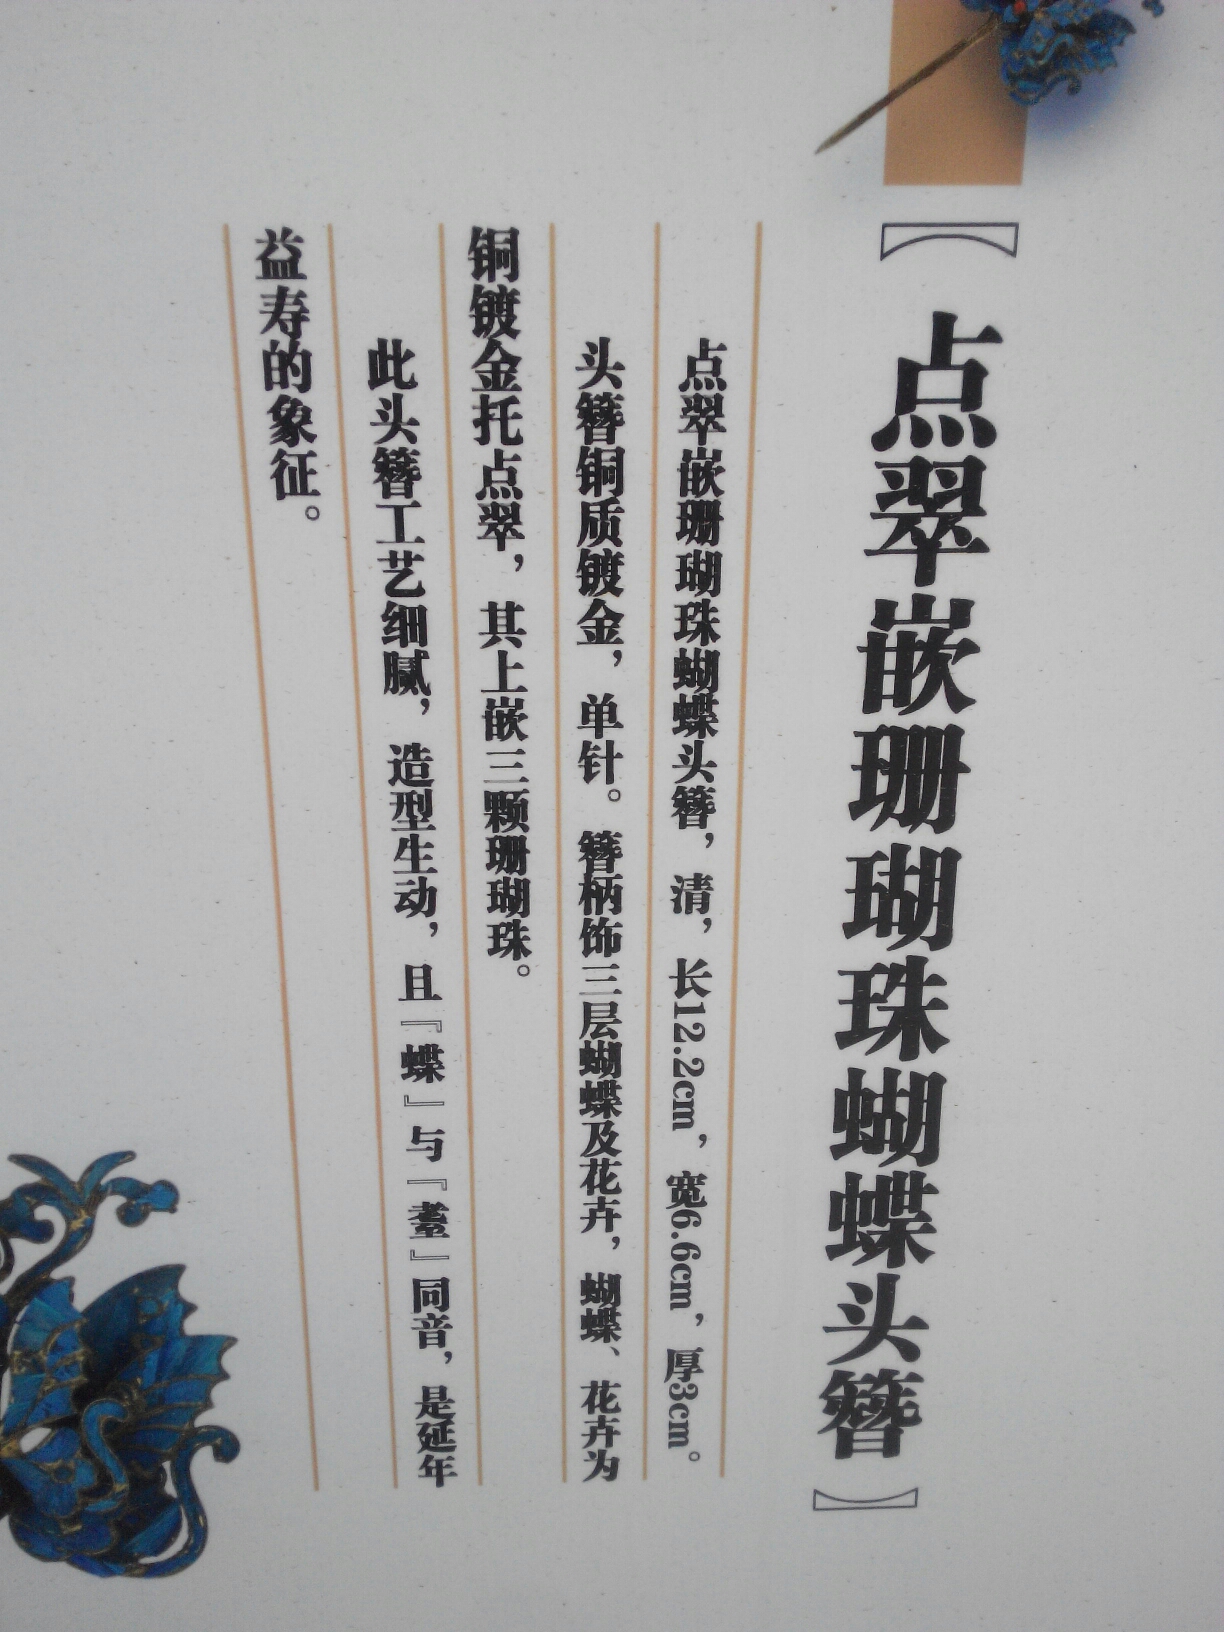 【点翠嵌珊瑚珠蝴蝶头簪】
点翠嵌珊瑚珠蝴蝶头簪，清，长12.2cm，宽6.6cm，厚3cm。
头簪铜质镀金，单针。簪柄饰三层蝴蝶及花卉，蝴蝶、花卉为
铜镀金托点翠，其上嵌三颗珊瑚珠。
此头簪工艺细腻，造型生动，且『蝶』与『耋』同音，是延年
益寿的象征。